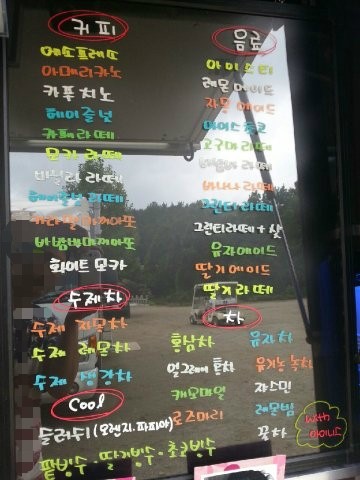 커피
에소프레쏘
아메리카노
카푸치노
헤이즐넛
카페라떼
모카 라떼
바닐라 라떼
헤이즐넛 라떼
카라멜마끼아또
바닐라마끼아또
화이트 모카
수제차
수제 자몽차
수제 레몬차
수제 생강차
Cool
슬러쉬(오렌지.파피아)
팥빙수·딸기빙수·초코빙수
음료
아이스티
레몬에이드
자몽 에이드
아이스초코
고구마 라떼
바나나 라떼
그린티 라떼
그린티라떼+샷
유자에이드
딸기에이드
딸기라떼
차
홍삼차
유자차
얼그레이 홍차
유기농 녹차
캐모마일
쟈스민
로즈마리
레몬밤
꽃차